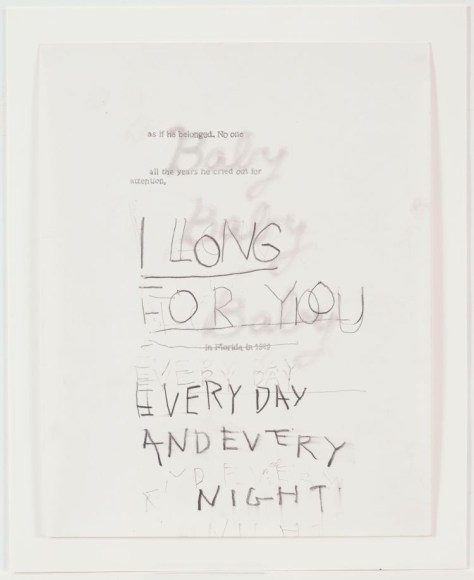 as if he belonged. No one
Baby
all the years he cried out for
attention,
Baby
I LONG
FOR YOU
Baby
in Florida in
EVERY DAY
EVERY DAY
AND EVERY
NIGHT